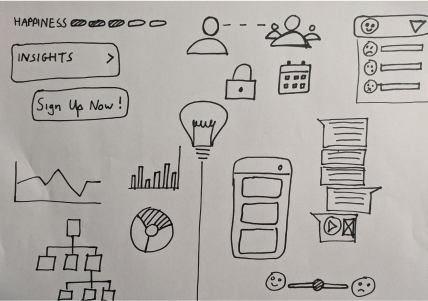 HAPPINESS
INSIGHTS >
Sign Up Now!